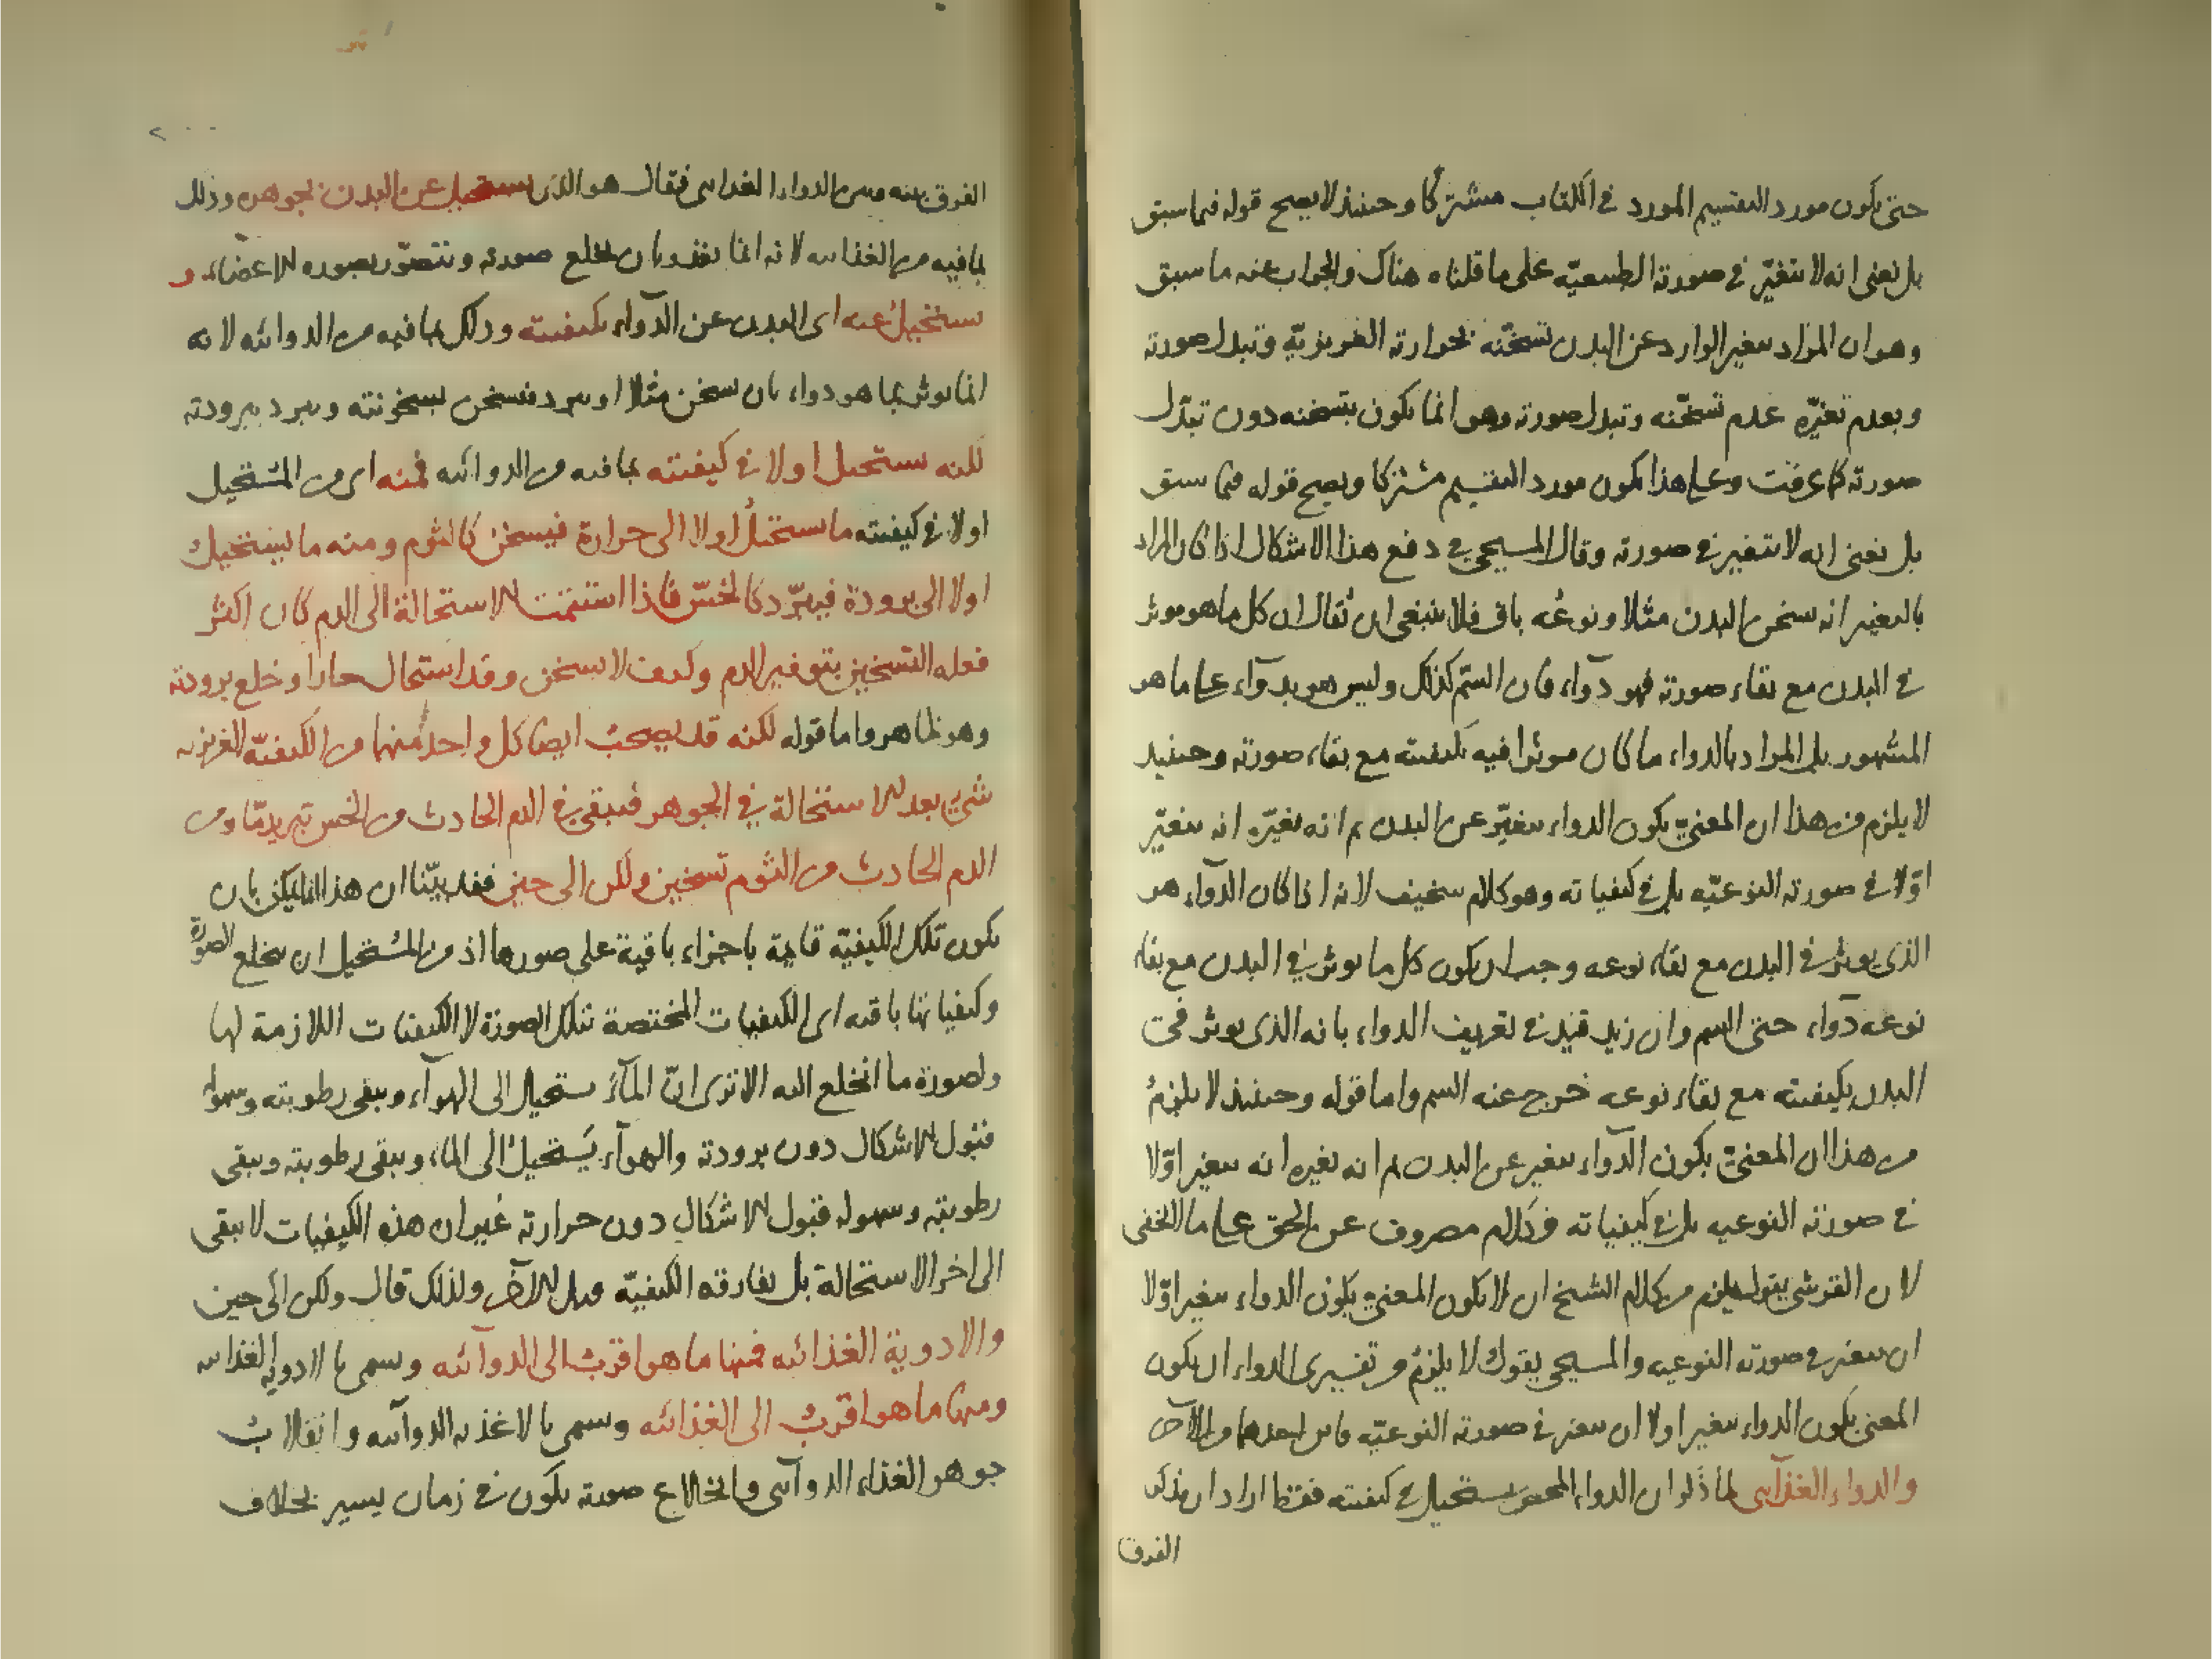 حتى يكون مورد التقسيم المورد في الكتاب مشتركا وحينئذ لا يصح قوله فيما سبق
بل نعنى انه لا يتغيّر في صورته الطبيعيّة على ما قلناه هناك والجواب عنه ما سبق
وهو ان المراد بتغير الوارد عن البدن تسخّنه بحرارته الغريزيّة وتبدل صورته
وبعدم تغيّره عدم تسخّنه وتبدل صورته وهو انما يكون بتسخنه دون تبدّل
صورته كما عرفت وعلى هذا يكون مورد التقسيم مشتركا ويصح قوله فيما سبق
بل نعنى انه لا يتغير في صورته وقال المسيحي في دفع هذا الاشكال اذا كان المراد
بالتغير انه يسخن البدن مثلا ونوعه باق فلا ينبغي ان يُقال ان كل ما هو يوثر
في البدن مع بقاء صورته فهو دوآء فان السّم كذلك وليس هو بدوآء على ما هو
المشهور بل المراد بالدواء ما كان موثرا فيه بكيفيته مع بقاء صورته وحينئذ
لا يلزم من هذا ان المعنيّ بكون الدواء يتغيّر عن البدن ثم انه يغيّره انه يتغيّر
اوّلا في صورته النوعيّه بل في كيفياته وهو كلام سخيف لانه اذا كان الدوآء هو
الذى يوثر في البدن مع بقاء نوعه وجب ان يكون كل ما يوثر في البدن مع بقاء
نوعه دوآء حتى السم وان زيد قيد في تعريف الدواء بانه الذى يوثر في
البدن بكيفيته مع بقاء نوعه خرج عنه السم واما قوله وحينئذ لا يلزمُ
من هذا ان المعنيّ بكون الدوآء يتغير عن البدن ثم انه يغيره انه يتغير اوّلا
في صورته النوعيه بل في كيفياته فكلام مصروف عن الحق على ما لا يخفى
لان القرشي يقول يلزم من كلام الشيخ ان لا يكون المعنيّ بكون الدواء يتغير اوّلا
ان يتغير في صورته النوعيه والمسيحى يقول لا يلزم من تفسيرى الدواء ان يكون
المعنى بكون الدواء يتغير اولا ان يتغير في صورته النوعيّه فاين احدهما من الآخر
والدواء الغذآئى لما ذكر ان الدواء المحض يستحيل في كيفيته فقط اراد ان يذكر
الفرق
الفرق بينه وبين الدواء الغذائى فقال هو الذى يستحيل عن البدن بجوهره وذلك
بما فيه من الغذائيه لانه انما يغذو بان يخلع صورته ويتصوّر بصوره الاعضاء و
يستحيل عنه اى البدن عن الدوآء بكيفيته وذلك بما فيه من الدوائيه لانه
انما يوثر بما هو دواء بان يسخن مثلا او يبرد فيسخن بسخونته ويبرد ببرودته
لكنه يستحيل اولا في كيفيته بما فيه من الدوائيه فمنه اى من المستحيل
اولا في كيفيته ما يستحيل اولا الى حرارة فيسخن كالثوم ومنه ما يستحيل
اولا الى برودة فيبرّد كالخسّ فاذا استتمت الاستحالة الى الدم كان اكثر
فعله التسخين بتوفير الدم وكيف لا يسخن وقد استحال حارا وخلع برودته
وهو ظاهر واما قوله لكنه قد يصحب ايضا كل واحد منهما من الكيفيّه الغريزيه
شيء بعد الاستحالة في الجوهر فيبقى في الدم الحادث من الخس تبريد مّا ومن
الدم الحادث من الثوم تسخين ولكن الى حين فقد بيّنا ان هذا انما يمكن بان
يكون تلك الكيفيّة قائمة باجزاء باقية على صورها اذ من المستحيل ان يخلع الصورة
وكيفياتها باقيه اى الكيفيات المختصة بتلك الصورة لا الكيفيات اللازمة لها
ولصورة ما انخلع اليه الا ترى انّ المآءَ يستحيل الى الهوآء ويبقى رطوبته وسهولة
قبول الاشكال دون برودته والهوآء يَستحيل الى الماء ويبقى رطوبته ويبقى
رطوبته وسهولة قبول الاشكال دون حرارته غير ان هذه الكيفيات لا يبقى
الى اخر الاستحالة بل يفارقه الكيفيّه قبل الآخر ولذلك قال ولكن الى حين
والادوية الغذائيه فمنها ما هو اقرب الى الدوآئيه ويسمى بالادوية الغذائيه
ومنها ما هو اقربُ الى الغذائيه ويسمى بالاغذيه الدوآئيه وانقلاب
جوهر الغذاء الدوآئى وانخلاع صورته يكون في زمان يسير بخلاف